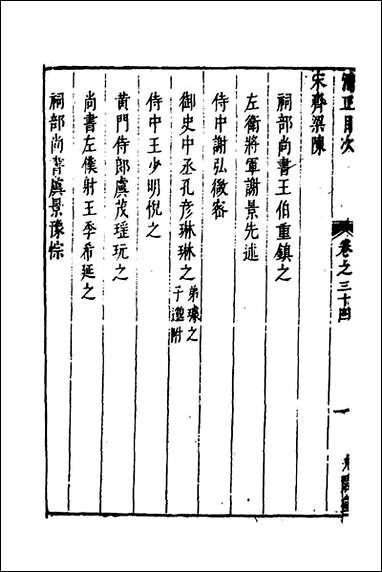 清正目次
卷之三十四
一
宋齊梁陳
祠部尚書王伯重鎮之
左衛將軍謝景先述
侍中謝弘微密
御史中丞孔彥琳琳之 弟璩之 子邈附
侍中王少明悅之
黃門侍郎虞茂瑶玩之
尚書左僕射王季希延之
祠部尚書虞景豫悰